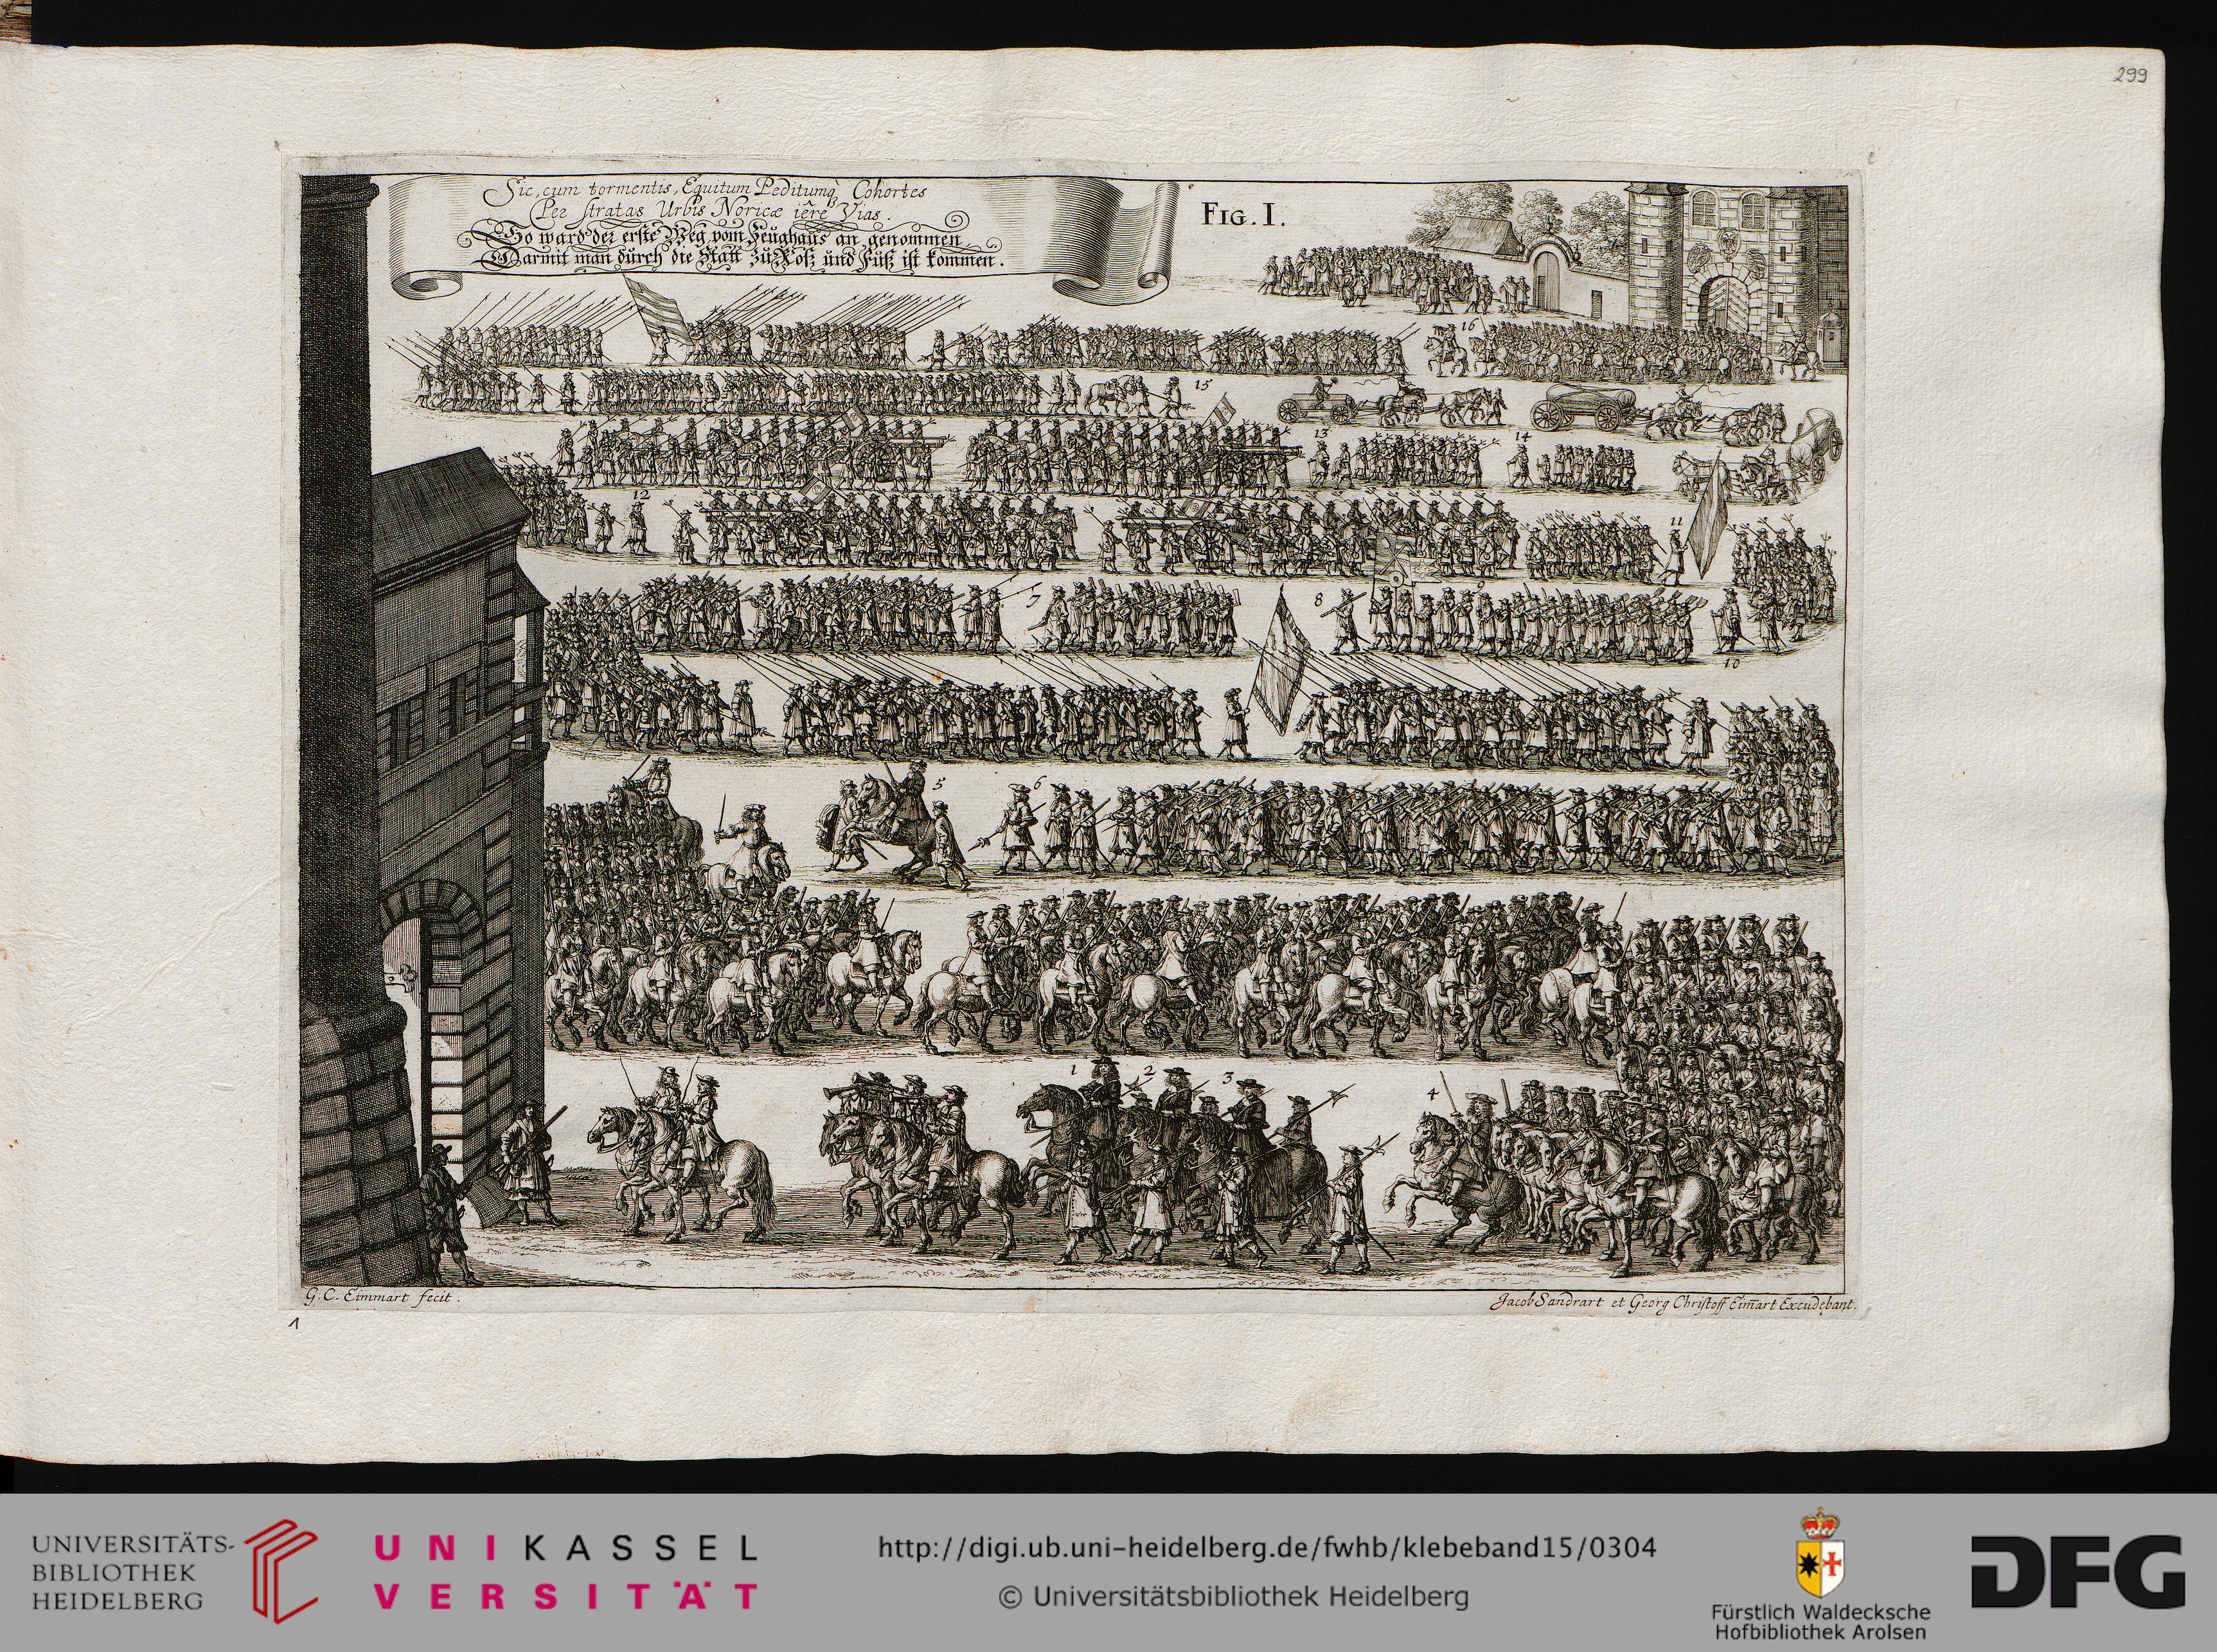 299
Sic, cum tormentis, Equitum Peditumq Cohortes
Per stratas Urbis Noricæ iêre Vias.
So ward der erste Weg vom Zeughaus an genommen
Darmit man durch die Statt zu Roß und Füß ist kommen.
FIG. I.
16
15
13
14
12
11
7
8
9
10
5
6
1
2
3
4
G. C. Eimmart fecit.
Jacob Sandrart et Georg Christoff Eim̄art Excudebant.
1
UNIVERSITÄTS-
BIBLIOTHEK
HEIDELBERG
UNIKASSEL
VERSITÄT
http://digi.ub.uni-heidelberg.de/fwhb/klebeband15/0304
© Universitätsbibliothek Heidelberg
Fürstlich Waldecksche
Hofbibliothek Arolsen
DFG